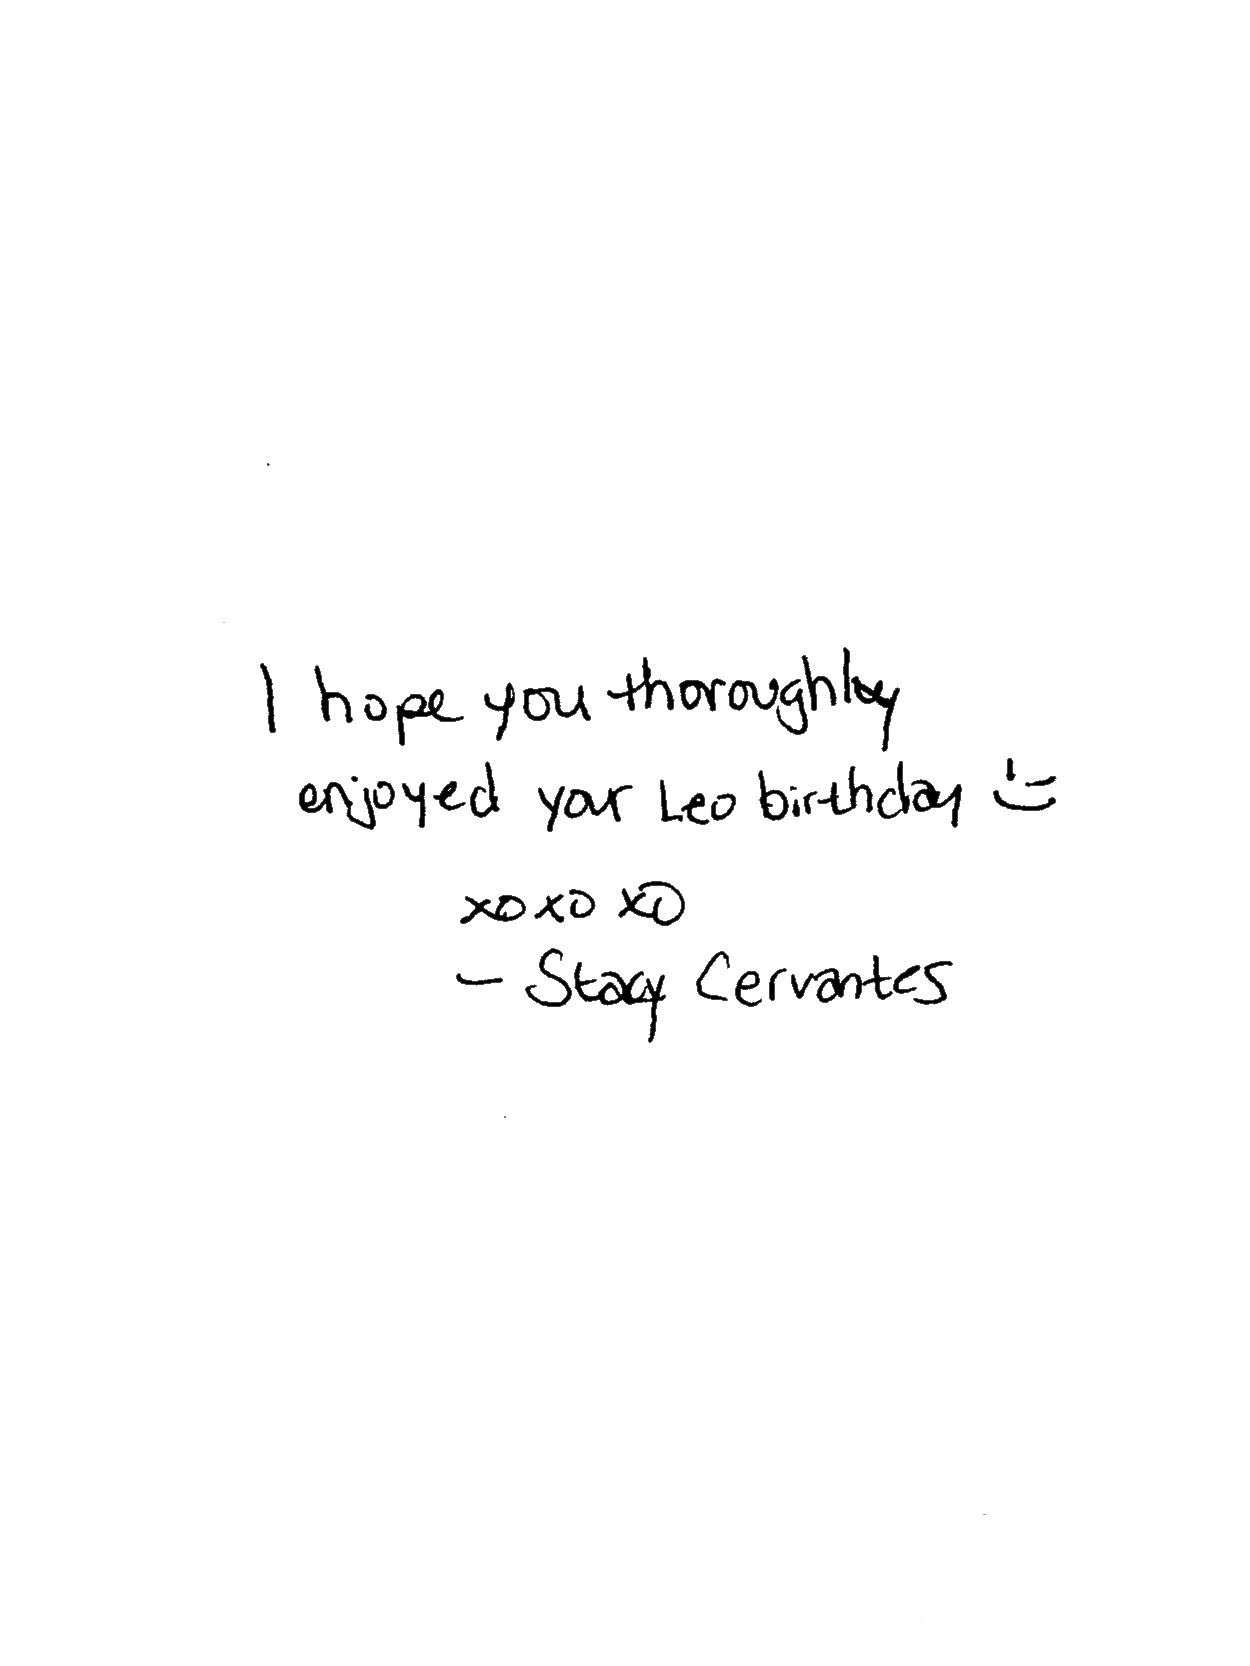 I hope you thoroughly
enjoyed your Leo birthday
xoxo xo
- Stacy Cervantes